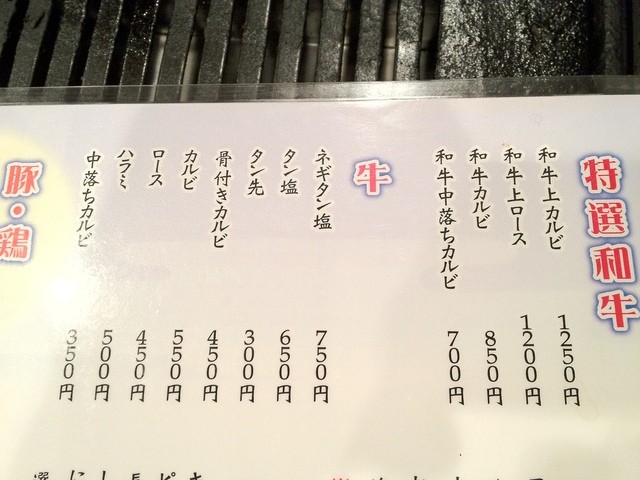 特選和牛
和牛上カルビ 1250円
和牛上ロース 1200円
和牛カルビ 850円
和牛中落ちカルビ 700円
牛
ネギタン塩 750円
タン塩 650円
タン先 300円
骨付きカルビ 450円
カルビ 550円
ロース 450円
ハラミ 500円
中落ちカルビ 350円
豚・鶏